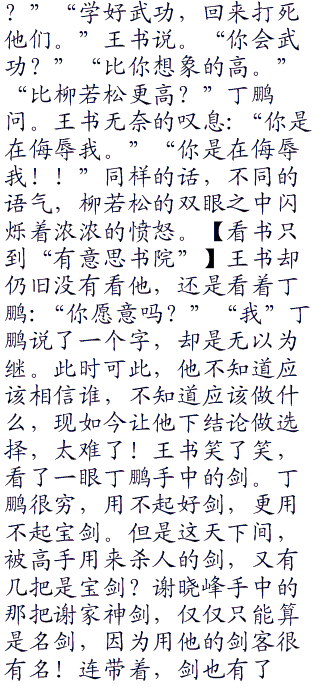 ？”“学好武功，回来打死
他们。”王书说。“你会武
功？”“比你想象的高。”
“比柳若松更高？”丁鹏
问。王书无奈的叹息:“你是
在侮辱我。”“你是在侮辱
我！！”同样的话，不同的
语气，柳若松的双眼之中闪
烁着浓浓的愤怒。【看书只
到“有意思书院”】王书却
仍旧没有看他，还是看着丁
鹏:“你愿意吗？”“我”丁
鹏说了一个字，却是无以为
继。此时可此，他不知道应
该相信谁，不知道应该做什
么，现如今让他下结论做选
择，太难了！王书笑了笑，
看了一眼丁鹏手中的剑。丁
鹏很穷，用不起好剑，更用
不起宝剑。但是这天下间，
被高手用来杀人的剑，又有
几把是宝剑？谢晓峰手中的
那把谢家神剑，仅仅只能算
是名剑，因为用他的剑客很
有名！连带着，剑也有了